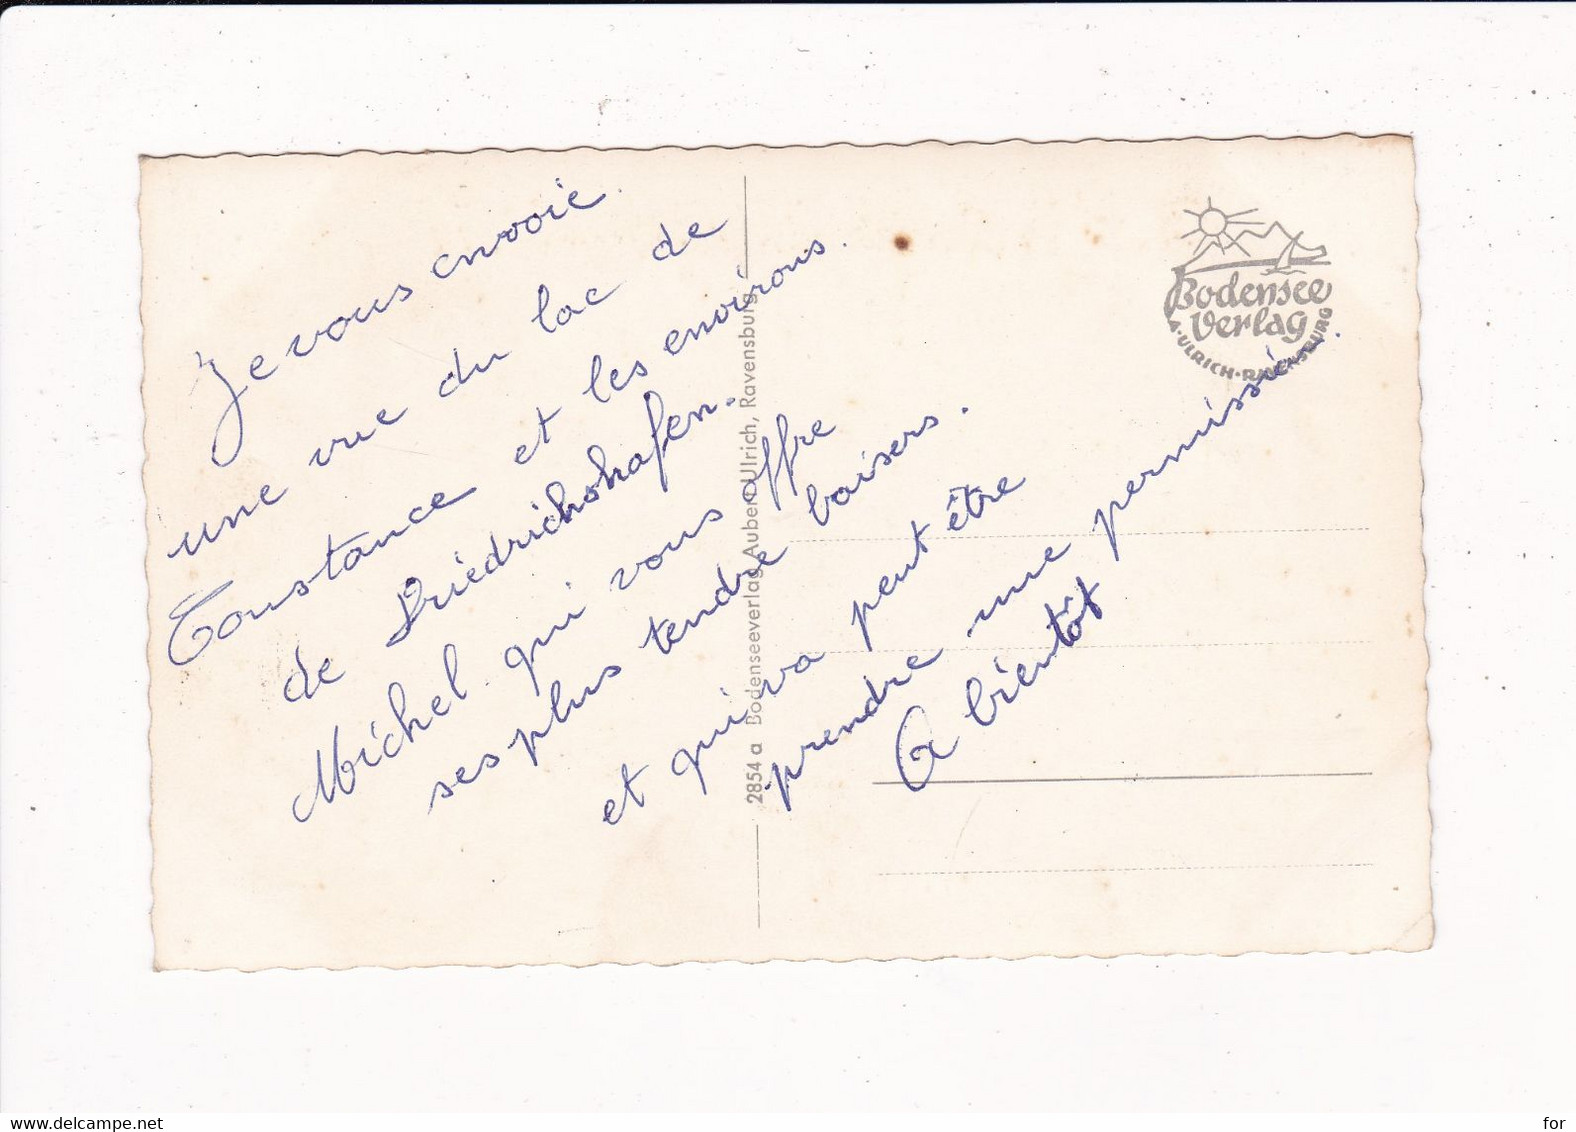 Je vous envoie
une vue du lac de
Constance et les environs.
de Friedrichshafen.
Michel qui vous offre
ses plus tendre baisers.
et qui va peut être
prendre une permission.
A bientôt
2854 a Bodenseeverlag Aubert Ulrich, Ravensburg
Bodensee
Verlag
A·ULRICH·RAVENSBURG
www.delcampe.net
for